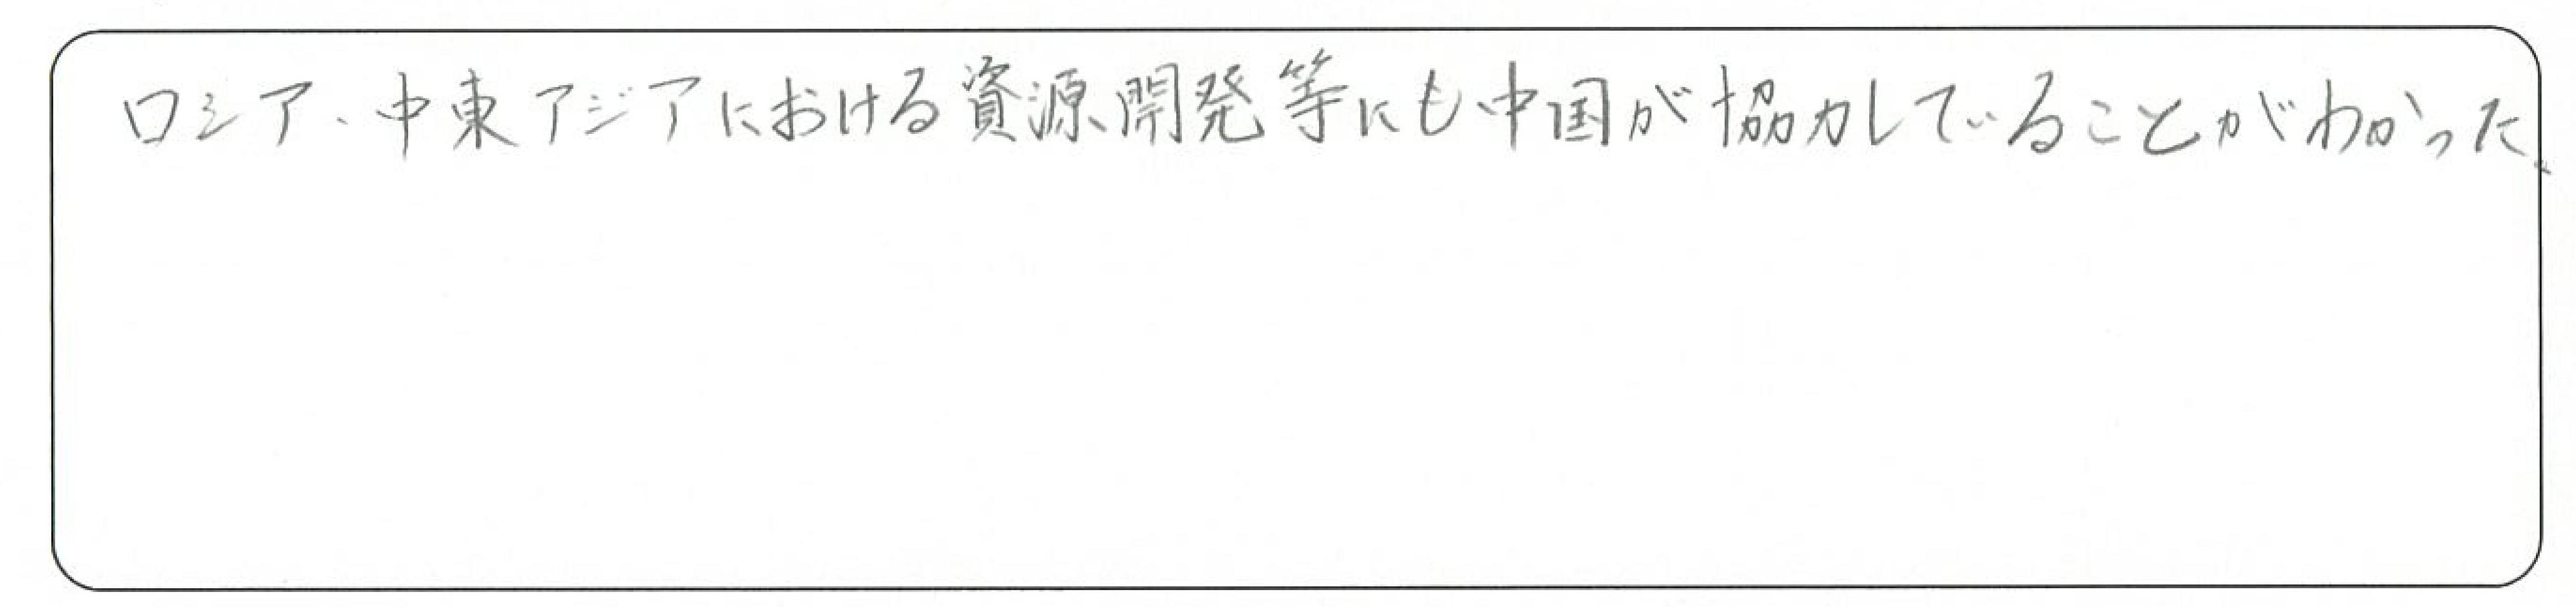 ロシア、中東アジアにおける資源開発等にも中国が協力していることがわかった。